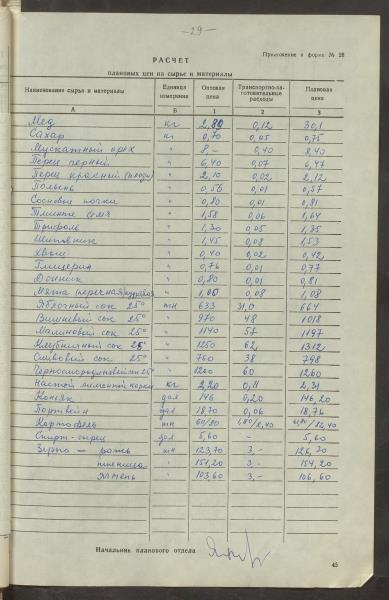 -29-
Приложение к форме № 28
РАСЧЕТ
плановых цен на сырье и материалы
Наименование сырья и материалы Единица измерения Оптовая цена Транспортно-заготовительные расходы Плановая цена
А Б 1 2 3
Мед кг 2,89 0,12 3,01
Сахар кг 0,70 0,05 0,75
Мускатный орех " 8,- 0,40 8,40
Перец черный " 6,40 0,07 6,47
Перец красный " 2,10 0,02 2,12
Полынь " 0,56 0,01 0,57
Сосновые почки " 0,80 0,01 0,81
Тмина семя " 1,58 0,06 1,64
Трифоль " 1,30 0,05 1,35
Шиповник " 1,45 0,08 1,53
Хвощ " 0,40 0,02 0,42
Глицерин " 0,76 0,01 0,77
Донник " 0,80 0,01 0,81
Мята перечная " 1,00 0,08 1,08
Яблочный сок 25° тн 633 31,0 664
Вишневый сок 25° " 970 48 1018
Малиновый сок 25° " 1140 57 1197
Клубничный сок 25° " 1250 62 1312
Сливовый сок 25° " 760 38 798
Черносмородиновый сок 25° " 1200 60 1260
Настой лимонной корки кг 2,20 0,11 2,31
Коньяк дал 146 0,20 146,20
Портвейн дал 18,70 0,06 18,76
Картофель тн 60/80
Спирт-сырец дал 5,60 - 5,60
Зерно - рожь тн 123,70 3,- 126,70
пшеница " 151,20 3,- 154,20
ячмень " 103,60 3,- 106,60
Начальник планового отдела
45